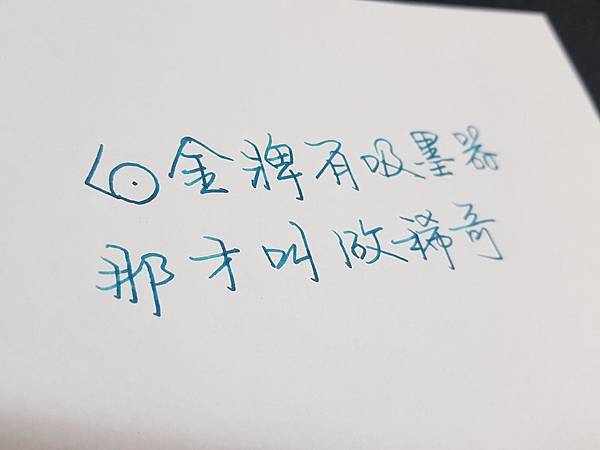 白金牌有吸墨器
那才叫做稀奇